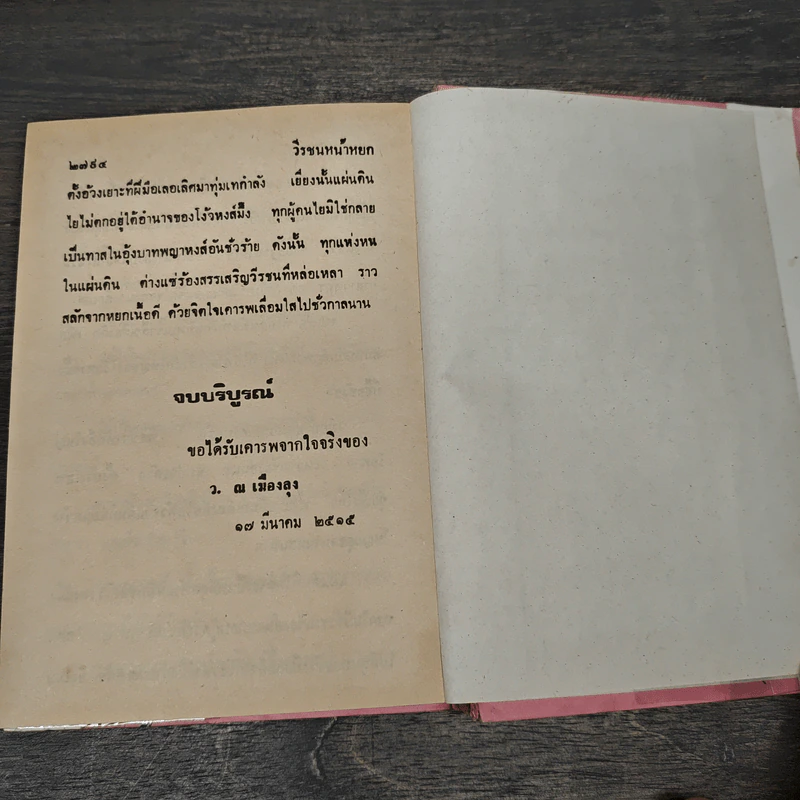 ๒๗๙๔ วีรชนหน้าหยก
ตั้งฮ้วงเยาะที่ฝีมือเลอเลิศมาทุ่มเทกำลัง เยี่ยงนั้นแผ่นดิน
ไยไม่ตกอยู่ใต้อำนาจของโง้วหงส์มิ้ง ทุกผู้คนไยมิใช่กลาย
เป็นทาสในอุ้งบาทพญาหงส์อันชั่วร้าย ดังนั้น ทุกแห่งหน
ในแผ่นดิน ต่างแซ่ร้องสรรเสริญวีรชนที่หล่อเหลา ราว
สลักจากหยกเนื้อดี ด้วยจิตใจเคารพเลื่อมใสไปชั่วกาลนาน
จบบริบูรณ์
ขอได้รับเคารพจากใจจริงของ
ว. ณ เมืองลุง
๑๗ มีนาคม ๒๕๑๕